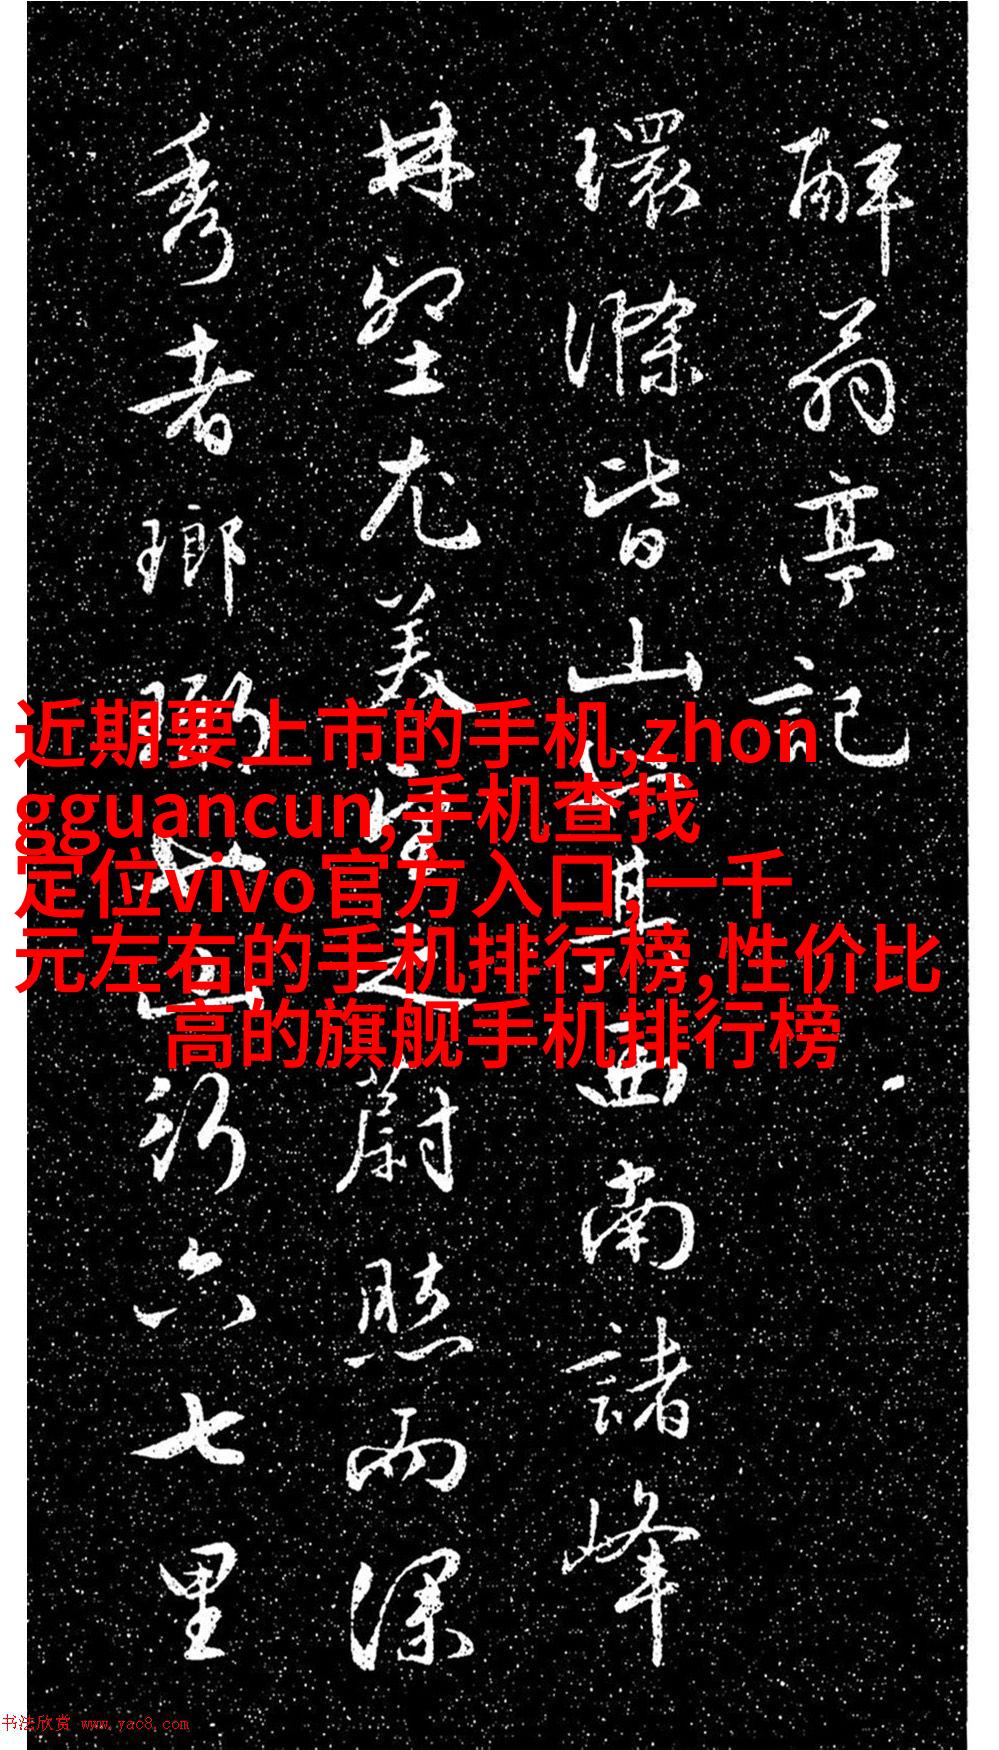 醉翁亭記
環滁皆山也其西南諸峰
林壑尤美望之蔚然而深
秀者瑯琊也山行六七里
近期要上市的手机,zhon
gguancun,手机查找
定位vivo官方入口,一千
元左右的手机排行榜,性价比
高的旗舰手机排行榜
书法欣赏 www.yac8.com